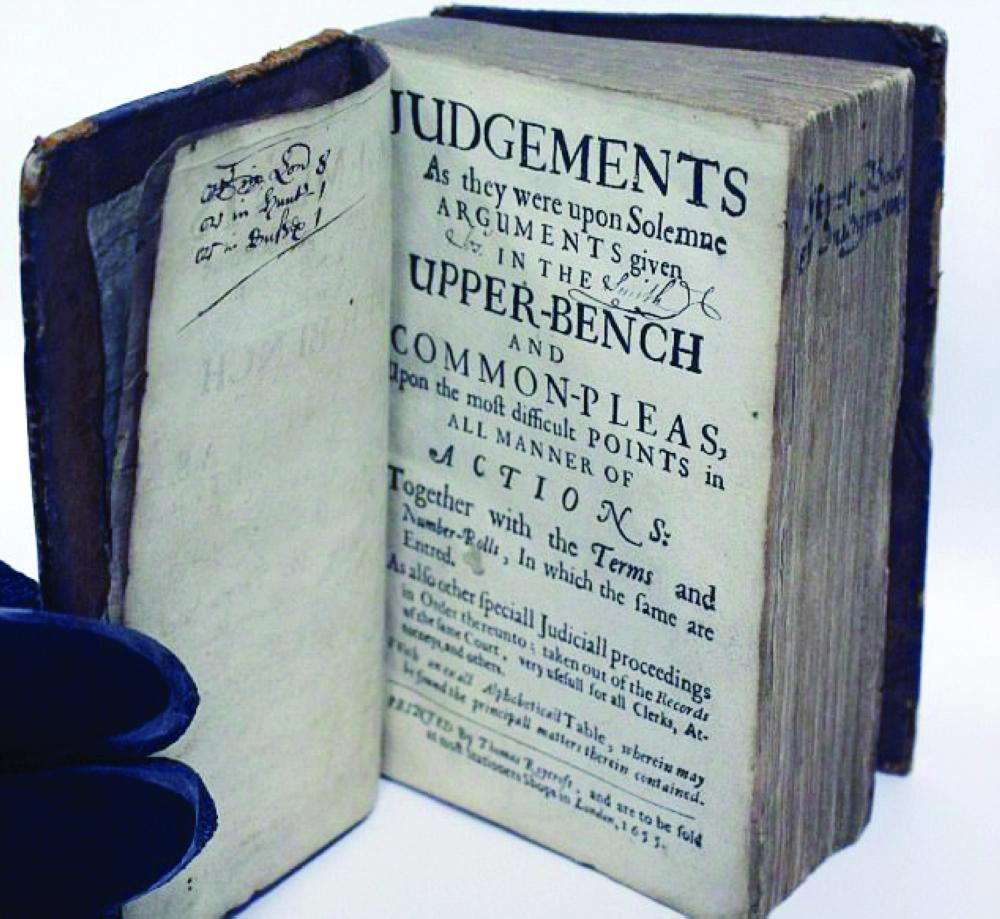 Lond 8
in Hunt- 1
JUDGEMENTS
As they were upon Solemne
ARGUMENTS given
IN THE
Smith
UPPER-BENCH
AND
COMMON-PLEAS,
Upon the moſt difficult POINTS in
ALL MANNER OF
ACTIONS:
Together with the Terms and
Number-Rolls, In which the ſame are
Entred.
As alſo other ſpeciall Judiciall proceedings
in Order thereunto; taken out of the Records
of the ſame Court, very uſefull for all Clerks, At-
torneys, and others.
With an exact Alphabeticall Table, wherein may
be found the principall matters therein contained.
PRINTED By Thomas Roycroft, and are to be ſold
at moſt Stationers Shops in London, 1655.